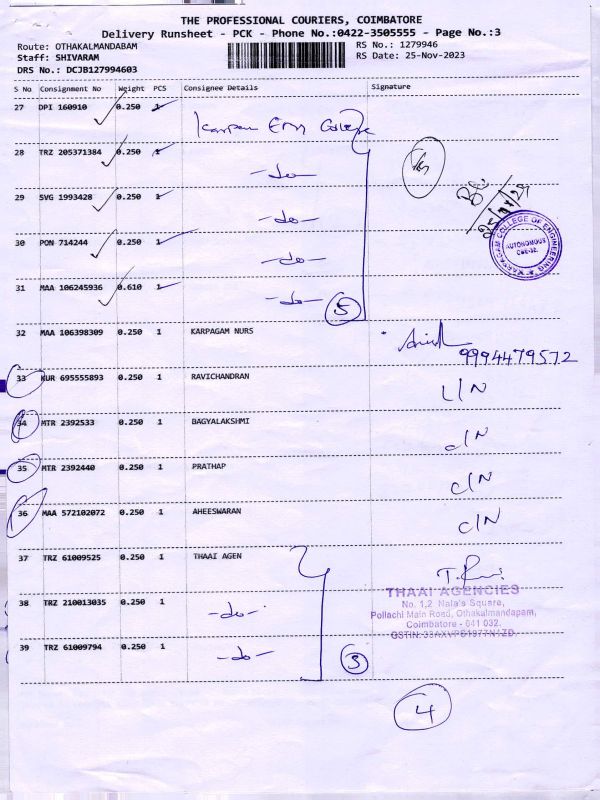 THE PROFESSIONAL COURIERS, COIMBATORE
Delivery Runsheet - PCK - Phone No.:0422-3505555 - Page No.:3
Route: OTHAKALMANDABAM
RS No.: 1279946
Staff: SHIVARAM
RS Date: 25-Nov-2023
DRS No.: DCJB127994603
S No Consignment No Weight PCS Consignee Details Signature
27 DPI 160910 0.250 1 Karpam Eng College
28 TRZ 205371384 0.250 1 -do-
29 SVG 1993428 0.250 1 -do-
30 PON 714244 0.250 1 -do-
31 MAA 106245936 0.610 1 -do- 5
KARPAGAM COLLEGE OF ENGINEERING
AUTONOMOUS
CBE-32.
32 MAA 106398309 0.250 1 KARPAGAM NURS
9994479572
33 KUR 695555893 0.250 1 RAVICHANDRAN L/N
34 MTR 2392533 0.250 1 BAGYALAKSHMI c/N
35 MTR 2392440 0.250 1 PRATHAP c/N
36 MAA 572102072 0.250 1 AHEESWARAN c/N
37 TRZ 61009525 0.250 1 THAAI AGEN
THAAI AGENCIES
No. 1,2 Nala's Square,
Pollachi Main Road, Othakalmandapam,
Coimbatore - 041 032.
38 TRZ 210013035 0.250 1 -do-
39 TRZ 61009794 0.250 1 -do- 3
4